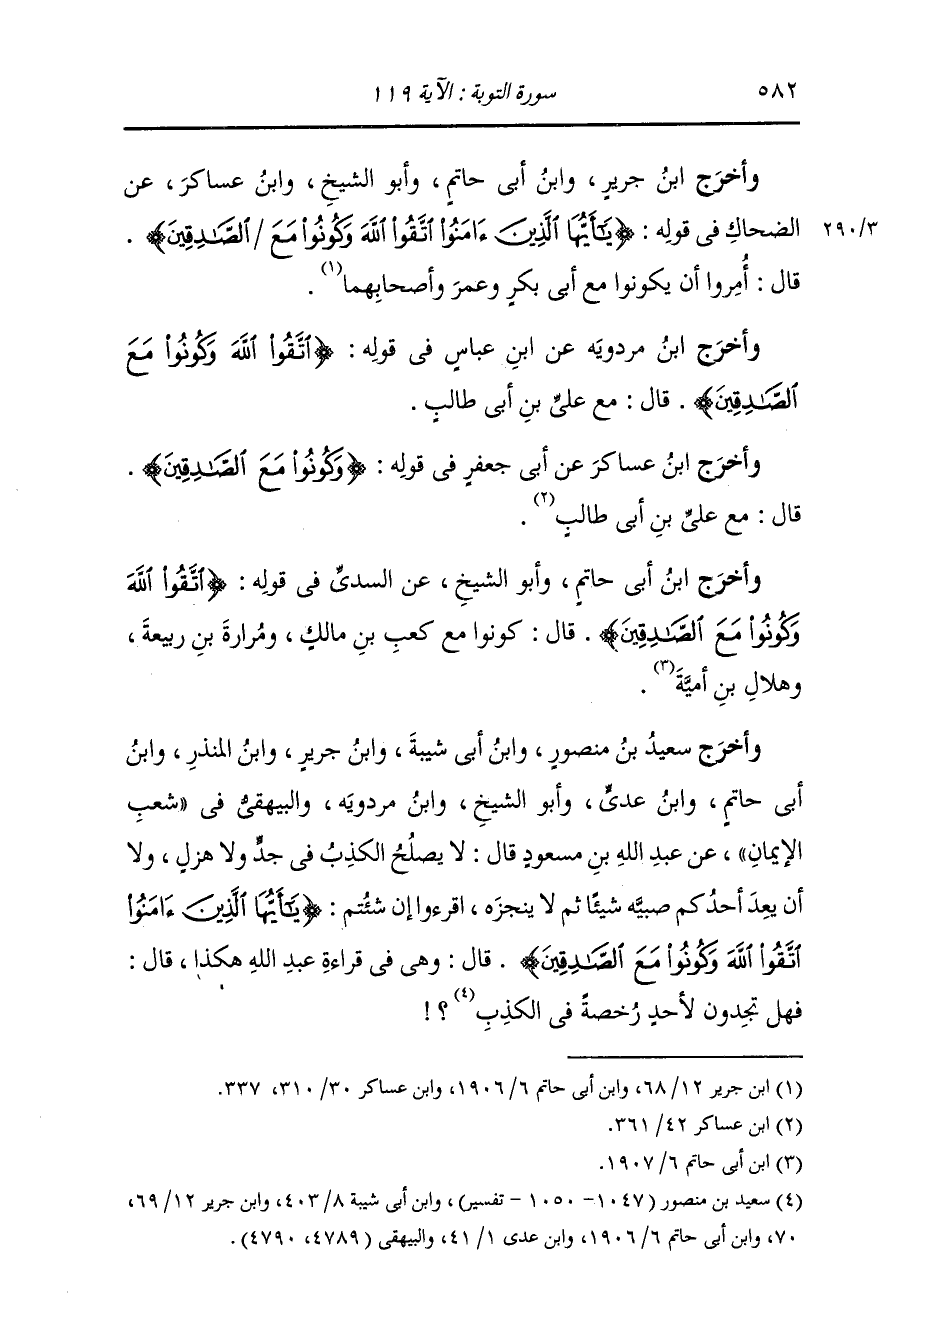 ٥٨٢ سورة التوبة : الآية ١١٩
وأخرَج ابنُ جريرٍ ، وابنُ أبى حاتمٍ ، وأبو الشيخِ ، وابنُ عساكرَ ، عن
٢٩٠/٣ الضحاكِ فى قولِه : ﴿يَٰٓأَيُّهَا ٱلَّذِينَ ءَامَنُوا۟ ٱتَّقُوا۟ ٱللَّهَ وَكُونُوا۟ مَعَ / ٱلصَّٰدِقِينَ﴾ .
قال : أُمِروا أن يكونوا مع أبى بكرٍ وعمرَ وأصحابِهما(١) .
وأخرَج ابنُ مردويَه عن ابنِ عباسٍ فى قولِه : ﴿ٱتَّقُوا۟ ٱللَّهَ وَكُونُوا۟ مَعَ
ٱلصَّٰدِقِينَ﴾ . قال : مع علىِّ بنِ أبى طالبٍ .
وأخرَج ابنُ عساكرَ عن أبى جعفرٍ فى قولِه : ﴿وَكُونُوا۟ مَعَ ٱلصَّٰدِقِينَ﴾ .
قال : مع علىِّ بنِ أبى طالبٍ(٢) .
وأخرَج ابنُ أبى حاتمٍ ، وأبو الشيخِ ، عن السدىِّ فى قولِه : ﴿ٱتَّقُوا۟ ٱللَّهَ
وَكُونُوا۟ مَعَ ٱلصَّٰدِقِينَ﴾ . قال : كونوا مع كعبِ بنِ مالكٍ ، ومُرارةَ بنِ ربيعةَ ،
وهلالِ بنِ أميَّةَ(٣) .
وأخرَج سعيدُ بنُ منصورٍ ، وابنُ أبى شيبةَ ، وابنُ جريرٍ ، وابنُ المنذرِ ، وابنُ
أبى حاتمٍ ، وابنُ عدىٍّ ، وأبو الشيخِ ، وابنُ مردويَه ، والبيهقىُّ فى «شعبِ
الإيمانِ» ، عن عبدِ اللهِ بنِ مسعودٍ قال : لا يصلُحُ الكذِبُ فى جدٍّ ولا هزلٍ ، ولا
أن يعِدَ أحدُكم صبيَّه شيئًا ثم لا ينجزَه ، اقرءوا إن شئتُم : ﴿يَٰٓأَيُّهَا ٱلَّذِينَ ءَامَنُوا۟
ٱتَّقُوا۟ ٱللَّهَ وَكُونُوا۟ مَعَ ٱلصَّٰدِقِينَ﴾ . قال : وهى فى قراءةِ عبدِ اللهِ هكذا ، قال :
فهل تجِدون لأحدٍ رُخصةً فى الكذِبِ(٤) ؟ !
(١) ابن جرير ١٢/ ٦٨، وابن أبى حاتم ٦/ ١٩٠٦، وابن عساكر ٣٠/ ٣١٠، ٣٣٧.
(٢) ابن عساكر ٤٢/ ٣٦١.
(٣) ابن أبى حاتم ٦/ ١٩٠٧.
(٤) سعيد بن منصور (١٠٤٧- ١٠٥٠ - تفسير)، وابن أبى شيبة ٨/ ٤٠٣، وابن جرير ١٢/ ٦٩،
٧٠، وابن أبى حاتم ٦/ ١٩٠٦، وابن عدى ١/ ٤١، والبيهقى (٤٧٨٩، ٤٧٩٠).